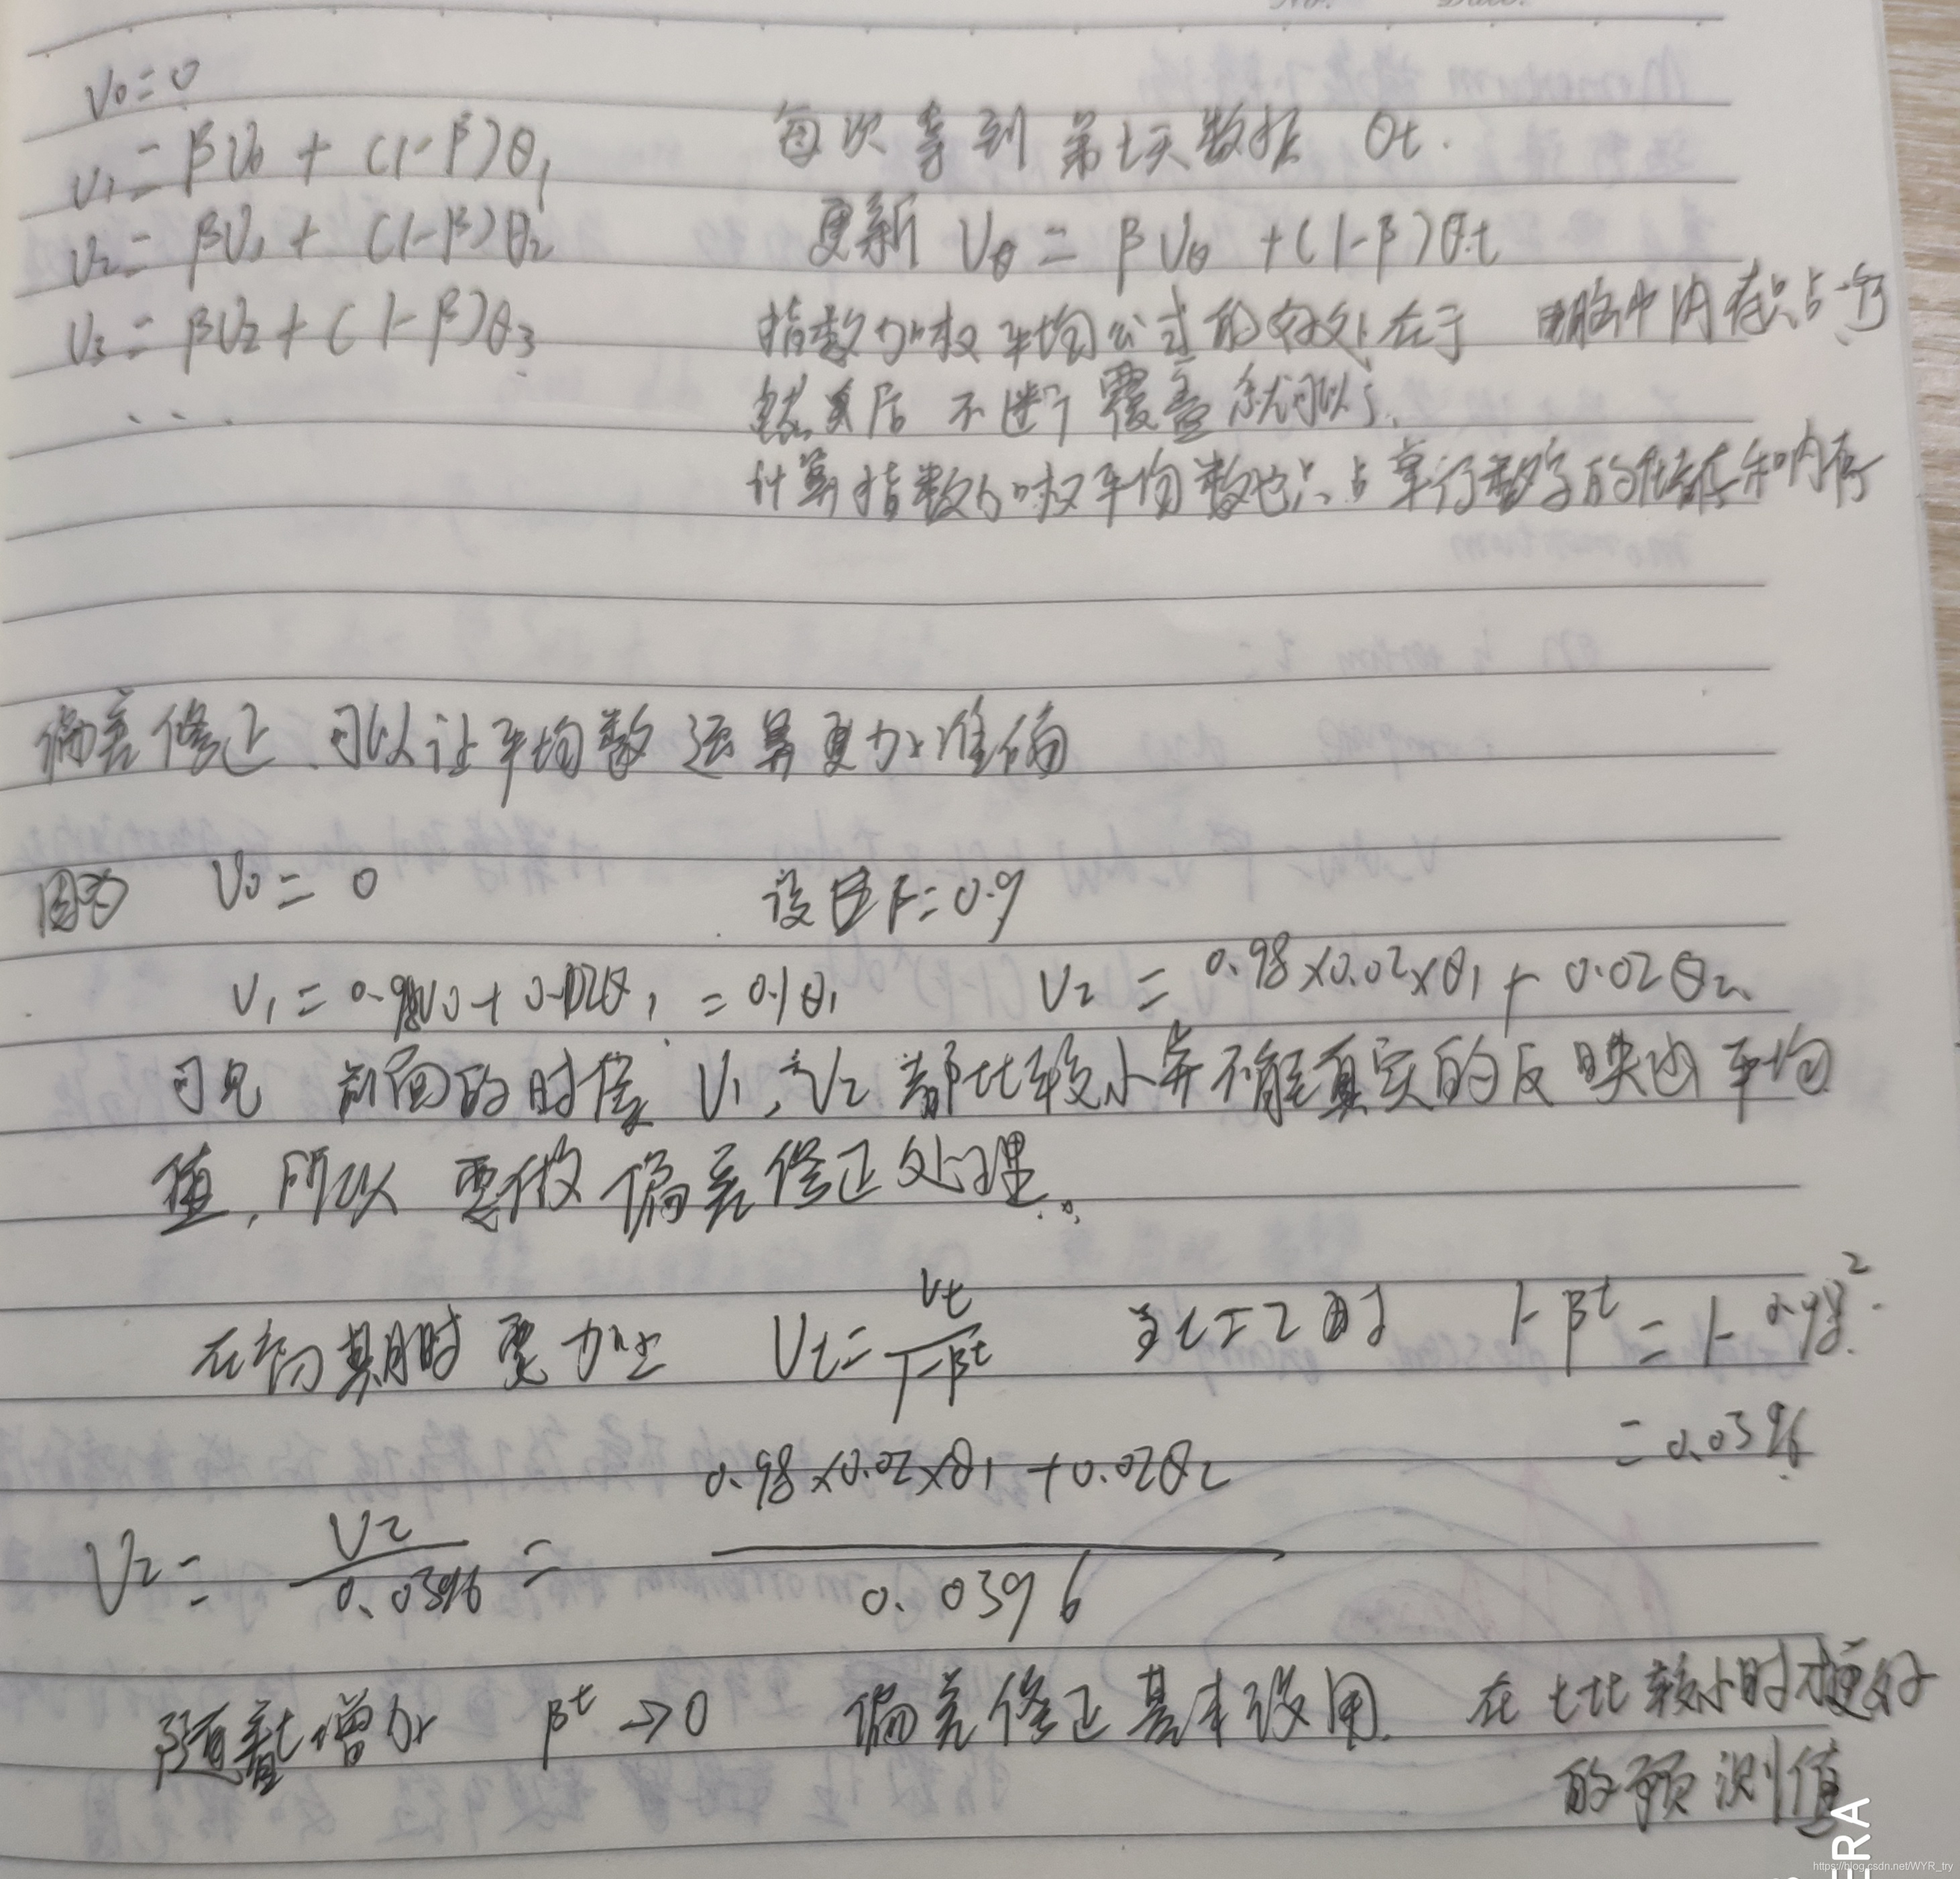 V₀=0
V₁=βV₀+(1-β)θ₁
V₂=βV₁+(1-β)θ₂
V₃=βV₂+(1-β)θ₃
...
每次等到 第t天数据 θt.
更新 Vθ=βVθ+(1-β)θt
指数加权平均公式的好处在于 电脑中内存只占一行
然后 不断 覆盖 就可以了.
计算指数加权平均数也只占单行数字的储存和内存
偏差修正 可以让平均数运算更加准确
因为 V₀=0 设 β=0.9
V₁=0.98V₀+0.02θ₁=0.1θ₁ V₂=0.98×0.02×θ₁+0.02θ₂
可见 前面的时候 V₁,V₂ 都比较小并不能真实的反映出平均
值,所以 要做 偏差修正处理。
在初期时要加上 Vt=Vt/(1-βᵗ) 当t=2时 1-βᵗ=1-0.98²
=0.0396
V₂=V₂/0.0396=(0.98×0.02×θ₁+0.02θ₂)/0.0396
随着t增加 βᵗ→0 偏差修正基本没用. 在t比较小时 更好
的预测值
ERA
https://blog.csdn.net/WYR_try